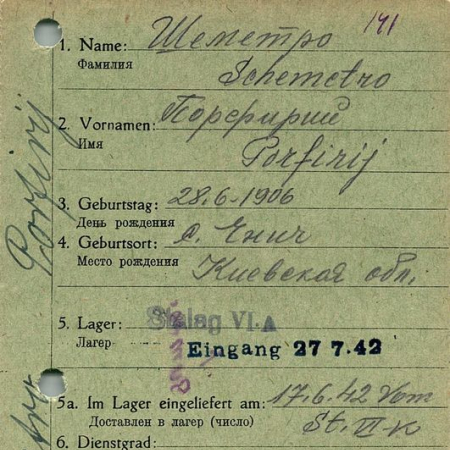 141
1. Name: Шеметро
Фамилия Schemetro
2. Vornamen: Порфирий
Имя Porfirij
3. Geburtstag: 28.6-1906
День рождения
4. Geburtsort: с. Енич
Место рождения Киевская обл.
5. Lager: Stalag VI A
Лагерь Eingang 27 7.42
5a. Im Lager eingeliefert am: 17.6.42 Vom
Доставлен в лагерь (число) St. VI-K
6. Dienstgrad:
Porfirij